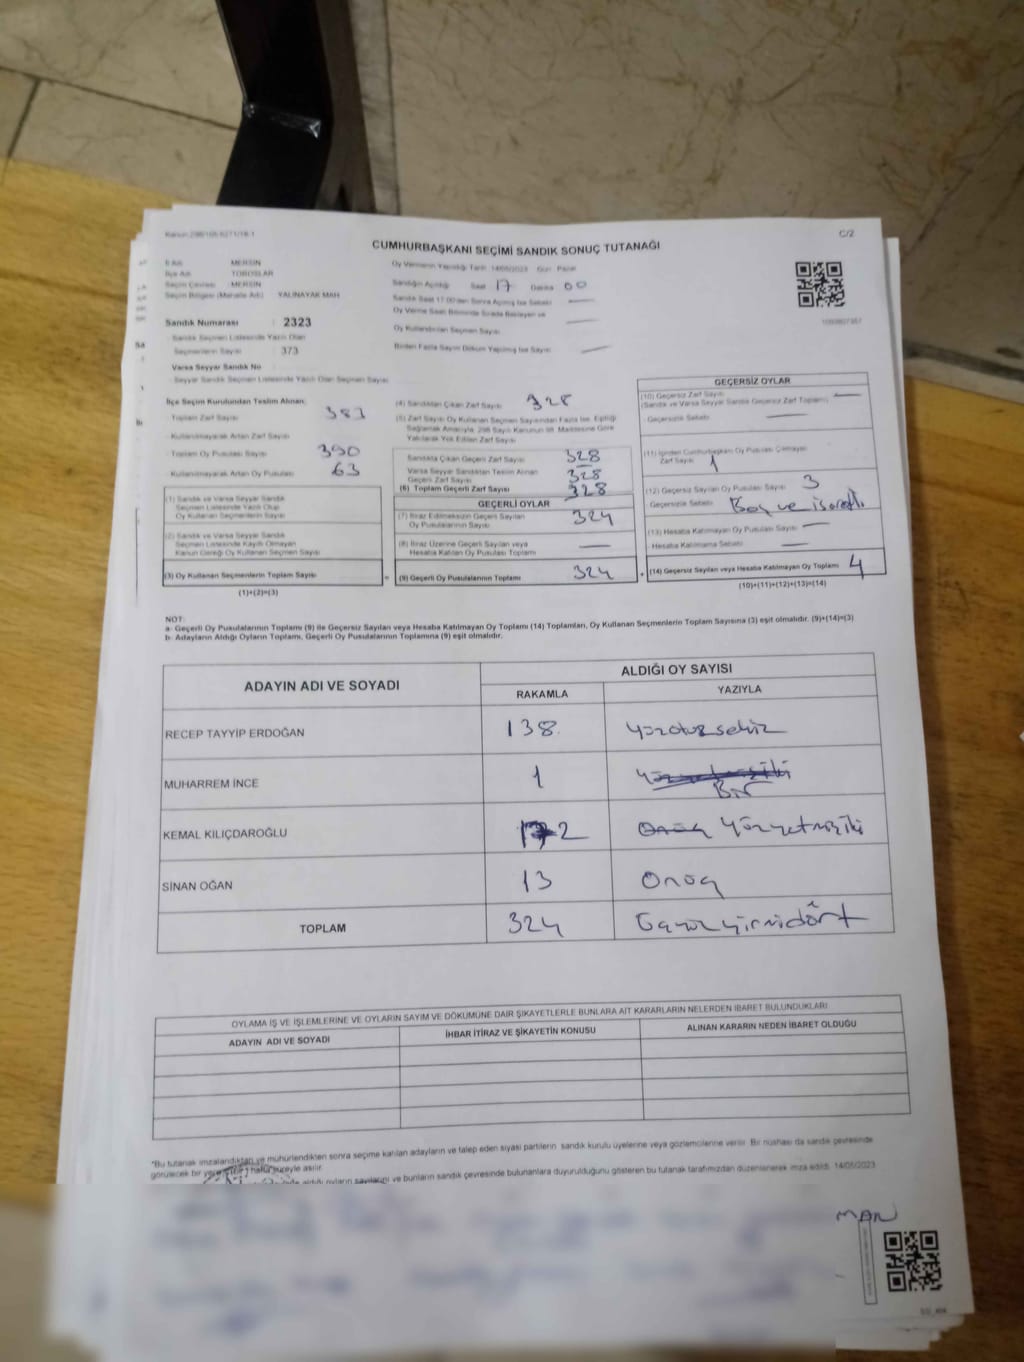 C/2
CUMHURBAŞKANI SEÇİMİ SANDIK SONUÇ TUTANAĞI
İl Adı : MERSİN
İlçe Adı : TOROSLAR
Seçim Çevresi : MERSİN
Seçim Bölgesi (Mahalle Adı) : YALINAYAK MAH
Sandık Numarası : 2323
Sandık Seçmen Listesinde Yazılı Olan
Seçmenlerin Sayısı : 373
Varsa Seyyar Sandık No
Seyyar Sandık Seçmen Listesinde Yazılı Olan Seçmen Sayısı
Oy Vermenin Yapıldığı Tarih : 14/05/2023 Gün : Pazar
Sandığın Açıldığı Saat 17 Dakika 00
Sandık Saat 17.00'den Sonra Açılmış İse Sebebi
Oy Verme Saati Bitiminde Sırada Bekleyen ve
Oy Kullandırılan Seçmen Sayısı
Birden Fazla Sayım Döküm Yapılmış İse Sayısı
İlçe Seçim Kurulundan Teslim Alınan;
Toplam Zarf Sayısı
Kullanılmayarak Artan Zarf Sayısı
Toplam Oy Pusulası Sayısı 390
Kullanılmayarak Artan Oy Pusulası 63
(1) Sandık ve Varsa Seyyar Sandık
Seçmen Listesinde Yazılı Olup
Oy Kullanan Seçmenlerin Sayısı
(2) Sandık ve Varsa Seyyar Sandık
Seçmen Listesinde Kayıtlı Olmayan
Kanun Gereği Oy Kullanan Seçmen Sayısı
(3) Oy Kullanan Seçmenlerin Toplam Sayısı =
(1)+(2)=(3)
(4) Sandıktan Çıkan Zarf Sayısı 328
(5) Zarf Sayısı Oy Kullanan Seçmen Sayısından Fazla İse, Eşitliği
Sağlamak Amacıyla, 298 Sayılı Kanunun 98. Maddesine Göre
Yakılarak Yok Edilen Zarf Sayısı
Sandıkta Çıkan Geçerli Zarf Sayısı 328
Varsa Seyyar Sandıktan Teslim Alınan
Geçerli Zarf Sayısı 328
(6) Toplam Geçerli Zarf Sayısı 328
GEÇERLİ OYLAR
(7) İtiraz Edilmeksizin Geçerli Sayılan
Oy Pusulalarının Sayısı 324
(8) İtiraz Üzerine Geçerli Sayılan veya
Hesaba Katılan Oy Pusulası Toplamı
(9) Geçerli Oy Pusulalarının Toplamı 324 +
GEÇERSİZ OYLAR
(10) Geçersiz Zarf Sayısı
(Sandık ve Varsa Seyyar Sandık Geçersiz Zarf Toplamı)
Geçersizlik Sebebi
(11) İçinden Cumhurbaşkanı Oy Pusulası Çıkmayan
Zarf Sayısı 1
(12) Geçersiz Sayılan Oy Pusulası Sayısı 3
Geçersizlik Sebebi Boş ve işaretli
(13) Hesaba Katılmayan Oy Pusulası Sayısı
Hesaba Katılmama Sebebi
(14) Geçersiz Sayılan veya Hesaba Katılmayan Oy Toplamı 4
(10)+(11)+(12)+(13)=(14)
NOT:
a- Geçerli Oy Pusulalarının Toplamı (9) ile Geçersiz Sayılan veya Hesaba Katılmayan Oy Toplamı (14) Toplamları, Oy Kullanan Seçmenlerin Toplam Sayısına (3) eşit olmalıdır. (9)+(14)=(3)
b- Adayların Aldığı Oyların Toplamı, Geçerli Oy Pusulalarının Toplamına (9) eşit olmalıdır.
ADAYIN ADI VE SOYADI
ALDIĞI OY SAYISI
RAKAMLA YAZIYLA
RECEP TAYYİP ERDOĞAN 138 yüzotuzsekiz
MUHARREM İNCE 1 Bir
KEMAL KILIÇDAROĞLU 172 Onüç Yüzyetmişiki
SİNAN OĞAN 13 Onüç
TOPLAM 324 Üçyüzyirmidört
OYLAMA İŞ VE İŞLEMLERİNE VE OYLARIN SAYIM VE DÖKÜMÜNE DAİR ŞİKAYETLERLE BUNLARA AİT KARARLARIN NELERDEN İBARET BULUNDUKLARI
ADAYIN ADI VE SOYADI İHBAR İTİRAZ VE ŞİKAYETİN KONUSU ALINAN KARARIN NEDEN İBARET OLDUĞU
*Bu tutanak imzalandıktan ve mühürlendikten sonra seçime katılan adayların ve talep eden siyasi partilerin sandık kurulu üyelerine veya gözlemcilerine verilir. Bir nüshası da sandık çevresinde
görülecek bir yere bir hafta süreyle asılır.
aldığı oyların sayılarını ve bunların sandık çevresinde bulunanlara duyurulduğunu gösteren bu tutanak tarafımızdan düzenlenerek imza edildi. 14/05/2023
MAN